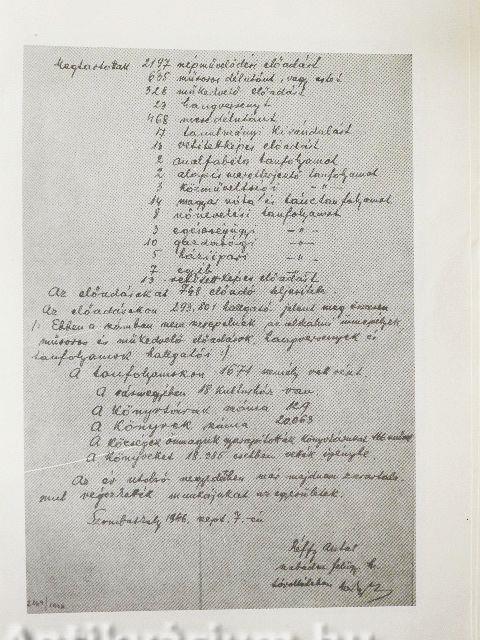 Megtartottak 2197 népművelődési előadást
635 műsoros délutánt, vagy estet
328 műkedvelő előadást
27 hangversenyt
468 mesedélutánt
17 tanulmányi kirándulást
18 vetítettképes előadást
2 analfabéta tanfolyamot
2 alapismeretterjesztő tanfolyamot
3 közműveltségi -"-
14 magyar nóta és tánctanfolyamot
8 nőnevelési tanfolyamot
3 egészségügyi -"-
10 gazdasági -"-
5 háziipari -"-
7 egyéb
13 vetített képes előadást
Az előadásokat 748 előadó teljesítette
Az előadásokon 293.801 hallgató jelent meg összesen
/: Ebben a számban nem szerepelnek az alkalmi ünnepélyek,
műsoros és műkedvelő előadások, hangversenyek és
tanfolyamok hallgatói :/
A tanfolyamokon 1671 személy vett részt
A vármegyében 18 kultúrház van
A könyvtárak száma 129
A könyvek száma 20.063
A községek önmaguk gyarapították könyvtárukat
A könyveket 18.985 esetben vették igénybe
Az év utolsó negyedében már majdnem zavartala-
nul végezhették munkájukat az egyesületek.
Szombathely 1946. szept. 7.-én
Antal
szabadm. felüg. h.